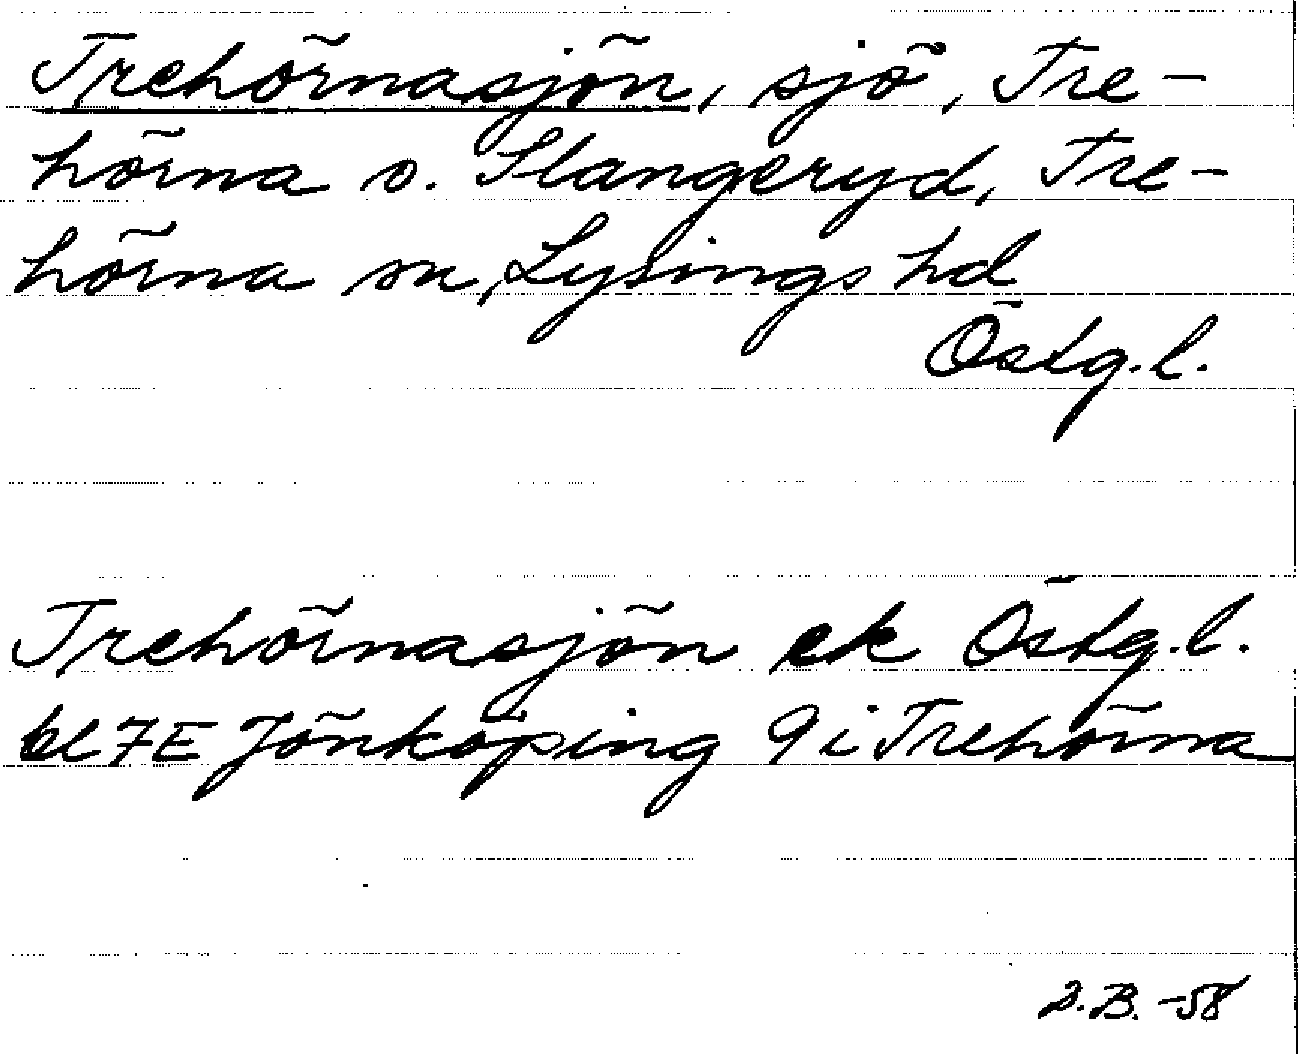 Trehörnasjön, sjö, Tre-
hörna o. Slangeryd, Tre-
hörna sn, Lysings hd
Östg.l.
Trehörnasjön ek Östg.l.
bl 7E Jönköping 9 i Trehörna
B. -58